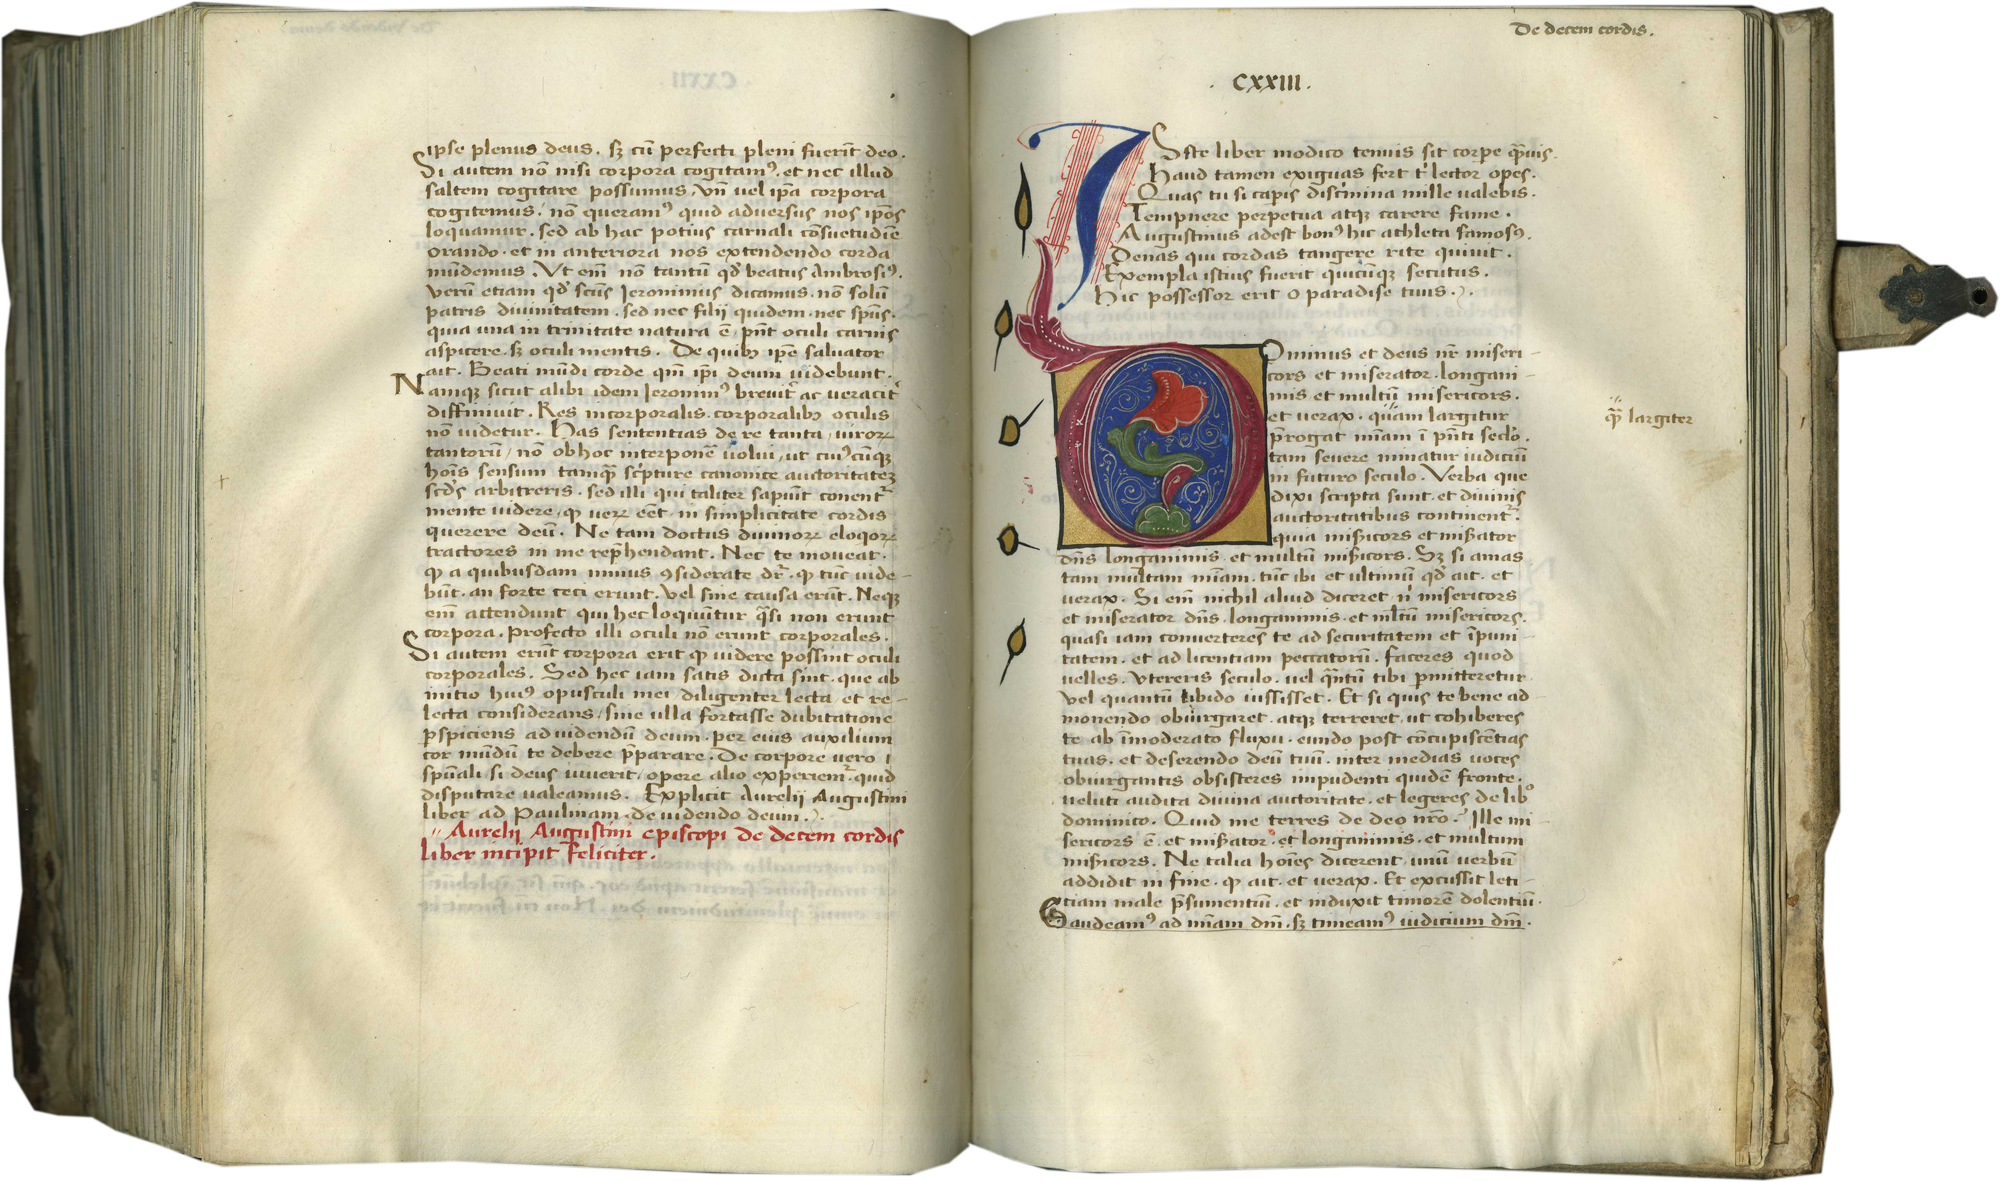 ipse plenus deus. sꝫ cū perfecti pleni fuerīt deo.
Si autem nō nisi corpora cogitamꝰ. et nec illud
saltem cogitare possumus, Vn̄ uel ip̄a corpora
cogitemus. nō queramꝰ quid adversus nos ip̄os
loquamur. sed ab hac potius carnali cōsuetudīe
orando. et in anteriora nos extendendo corda
mūdemus. Vt em̄ nō tantū qd̓ beatus Ambrosiꝰ.
verū etiam qd̓ scūs Ieronimus dicamus. nō solū
patris divinitatem. sed nec filij quidem. nec spūs.
quia una in trinitate natura ē. pn̄t oculi carnis
aspicere. sꝫ oculi mentis. De quibꝫ ip̄e saluator
ait. Beati mūdi corde qm̄ ip̄i deum uidebunt.
Namqꝫ sicut alibi idem Ieronimꝰ breuit̓ ac veracit̓
diffiniuit. Res incorporalis. corporalibꝫ oculis
nō uidetur. Has sententias de re tanta, uiroꝝ
tantorū, nō ob hoc interponē uolui, ut cuiꝰcūqꝫ
hoīs sensum tamqꝫ sc̓pture canonice auctoritateꝫ
arbitreris. sed illi qui taliter sapiūt conent̓
mente uidere, qꝫ ueꝝ eēt. in simplicitate cordis
querere deū. Ne tam doctus diuinoꝝ eloqoꝝ
tractores in me rep̄hendant. Nec te moueat.
qꝫ a quibusdam minus ꝯsiderate dr̄. qꝫ tūc uide-
būt. an forte ceci erunt. Vel sine causa erūt. Neqꝫ
em̄ attendunt qui hec loquūtur q̄si non erunt
corpora. Profecto illi oculi nō erunt corporales.
Si autem erūt corpora erit qꝫ uidere possint oculi
corporales. Sed hec iam satis dicta sint. que ab
initio huiꝰ opusculi mei diligenter lecta et re-
lecta considerans, sine ulla fortasse dubitatione
p̄spiciens ad uidendū deum. per eius auxilium
cor mūdū te debere p̄parare. De corpore uero
spūali si deus iuuerit, opere alio experiem̓ quid
disputare ualeamus. Explicit Aurelij Augustini
liber ad Paulinam. de uidendo deum.
Aurelij Augustini episcopi de decem cordis
liber incipit feliciter.
De decem cordis.
. CXXIII .
ISte liber modico tenuis sit corpe q̄uis.
Haud tamen exiguas fert t̓ lector opes.
Quas tu si capis discimina mille ualebis.
Tempnere perpetua atqꝫ carere fame.
Augustinus adest bonꝰ hic athleta famosꝰ.
Denas qui cordas tangere rite quiuit.
Exempla istius fuerit quicūqꝫ secutus.
Hic possessor erit o paradise tuis.
DOminus et deus nr̄ miseri-
cors et miserator. longani-
mis et multū misericors.
et uerax. quam largitur
p̄rogat miam ī pn̄ti sedo.
tam seuere minatur iudiciū
in futuro seculo. Verba que
dixi scripta sunt. et diuinis
auctoritatibus continent̓.
quia mis̓icors et mis̓ator
dn̄s longanimis. et multū mis̓icors. Sꝫ si amas
tam multam miam. tūc ibi et ultimū qd̓ ait. et
uerax. Si em̄ nichil aliud diceret n̓ misericors
et miserator dn̄s. longanimis. et mltū misericors.
quasi iam conuerteres te ad securitatem et īpuni-
tatem. et ad licentiam peccatorū. faceres quod
uelles. Vtereris seculo. uel q̄ntū tibi p̄mitteretur
Vel quantū libido iussisset. Et si quis te bene ad-
monendo obiurgaret. atqꝫ terreret. ut cohiberes
te ab īmoderato fluxu. eundo post cōcupiscētias
tuas. et deserendo deū tuū. inter medias uoces
obiurgantis obsisteres impudenti quidē fronte.
ueluti audita diuina auctoritate. et legeres de libꝰ
dominico. Quid me terres de deo nr̄o. Ille mi-
sericors ē. et mis̓ator. et longanimis. et multum
mis̓icors. Ne talia hoīes dicerent. unū uerbū
addidit in fine. qꝫ ait. et uerax. Et excussit leti-
tiam male p̄sumentiū. et induxit timorē dolentiū.
Gaudeamꝰ ad miam dn̄i. sꝫ timeamꝰ iudicium dn̄i.
q̄ largiter